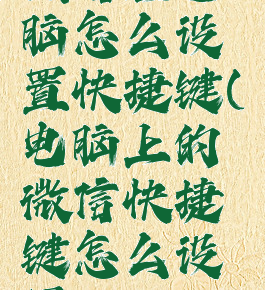 脑怎么设
置快捷键(
电脑上的
微信快捷
键怎么设